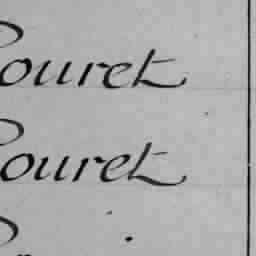 ouret
ouret